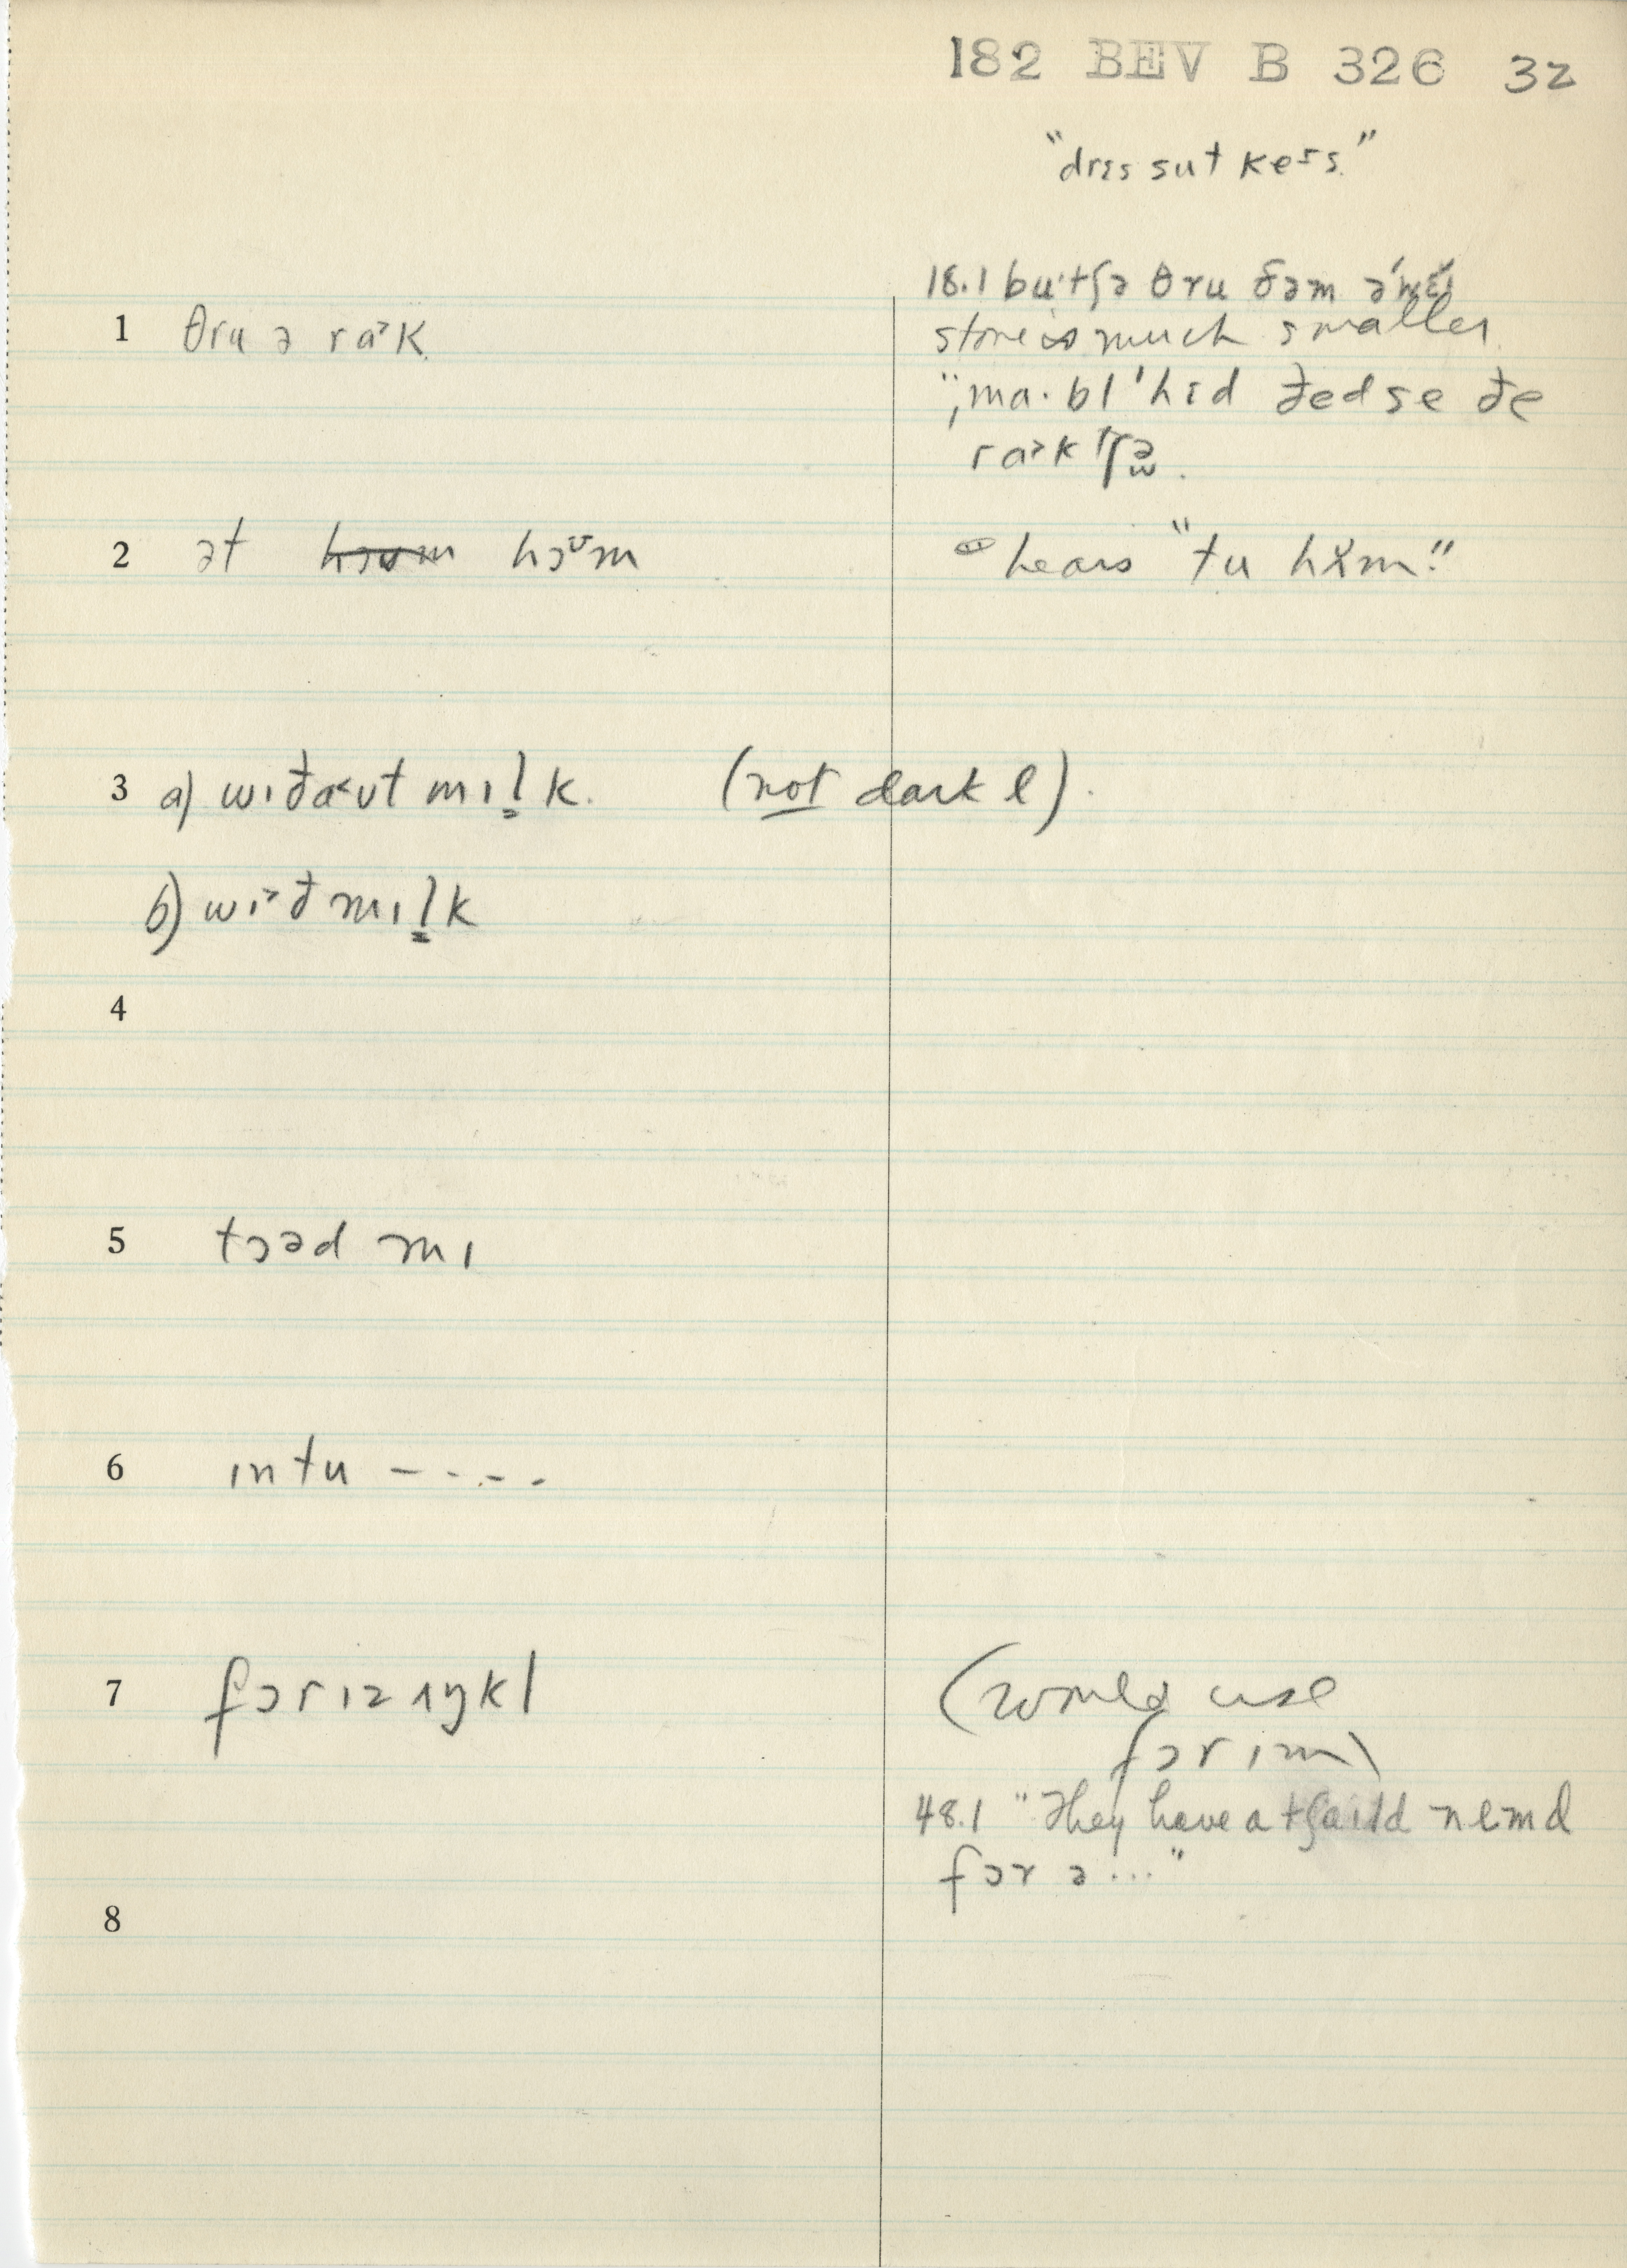 182 BEV B 326 32
"drɛs sut kers."
18.1 bu·tʃə θru ðəm
1 θru ə ra˃k
store is much smaller
"ma· bl 'hɪd ðed se ðe
ra˃k
2 ət hɔʊm hɔᶷm
hears "tu həm."
3 a) wɪða˂ʊt mɪl̩k. (not dark l).
b) wɪ˃ð mɪl̩k
4
5 tɔəd mɪ
6 ɪntu -----
7 fɔr ɪz ʌŋkl
(would use
fɔr ɪm)
48.1 "They have a tʃaɪld nemd
fɔr ə..."
8